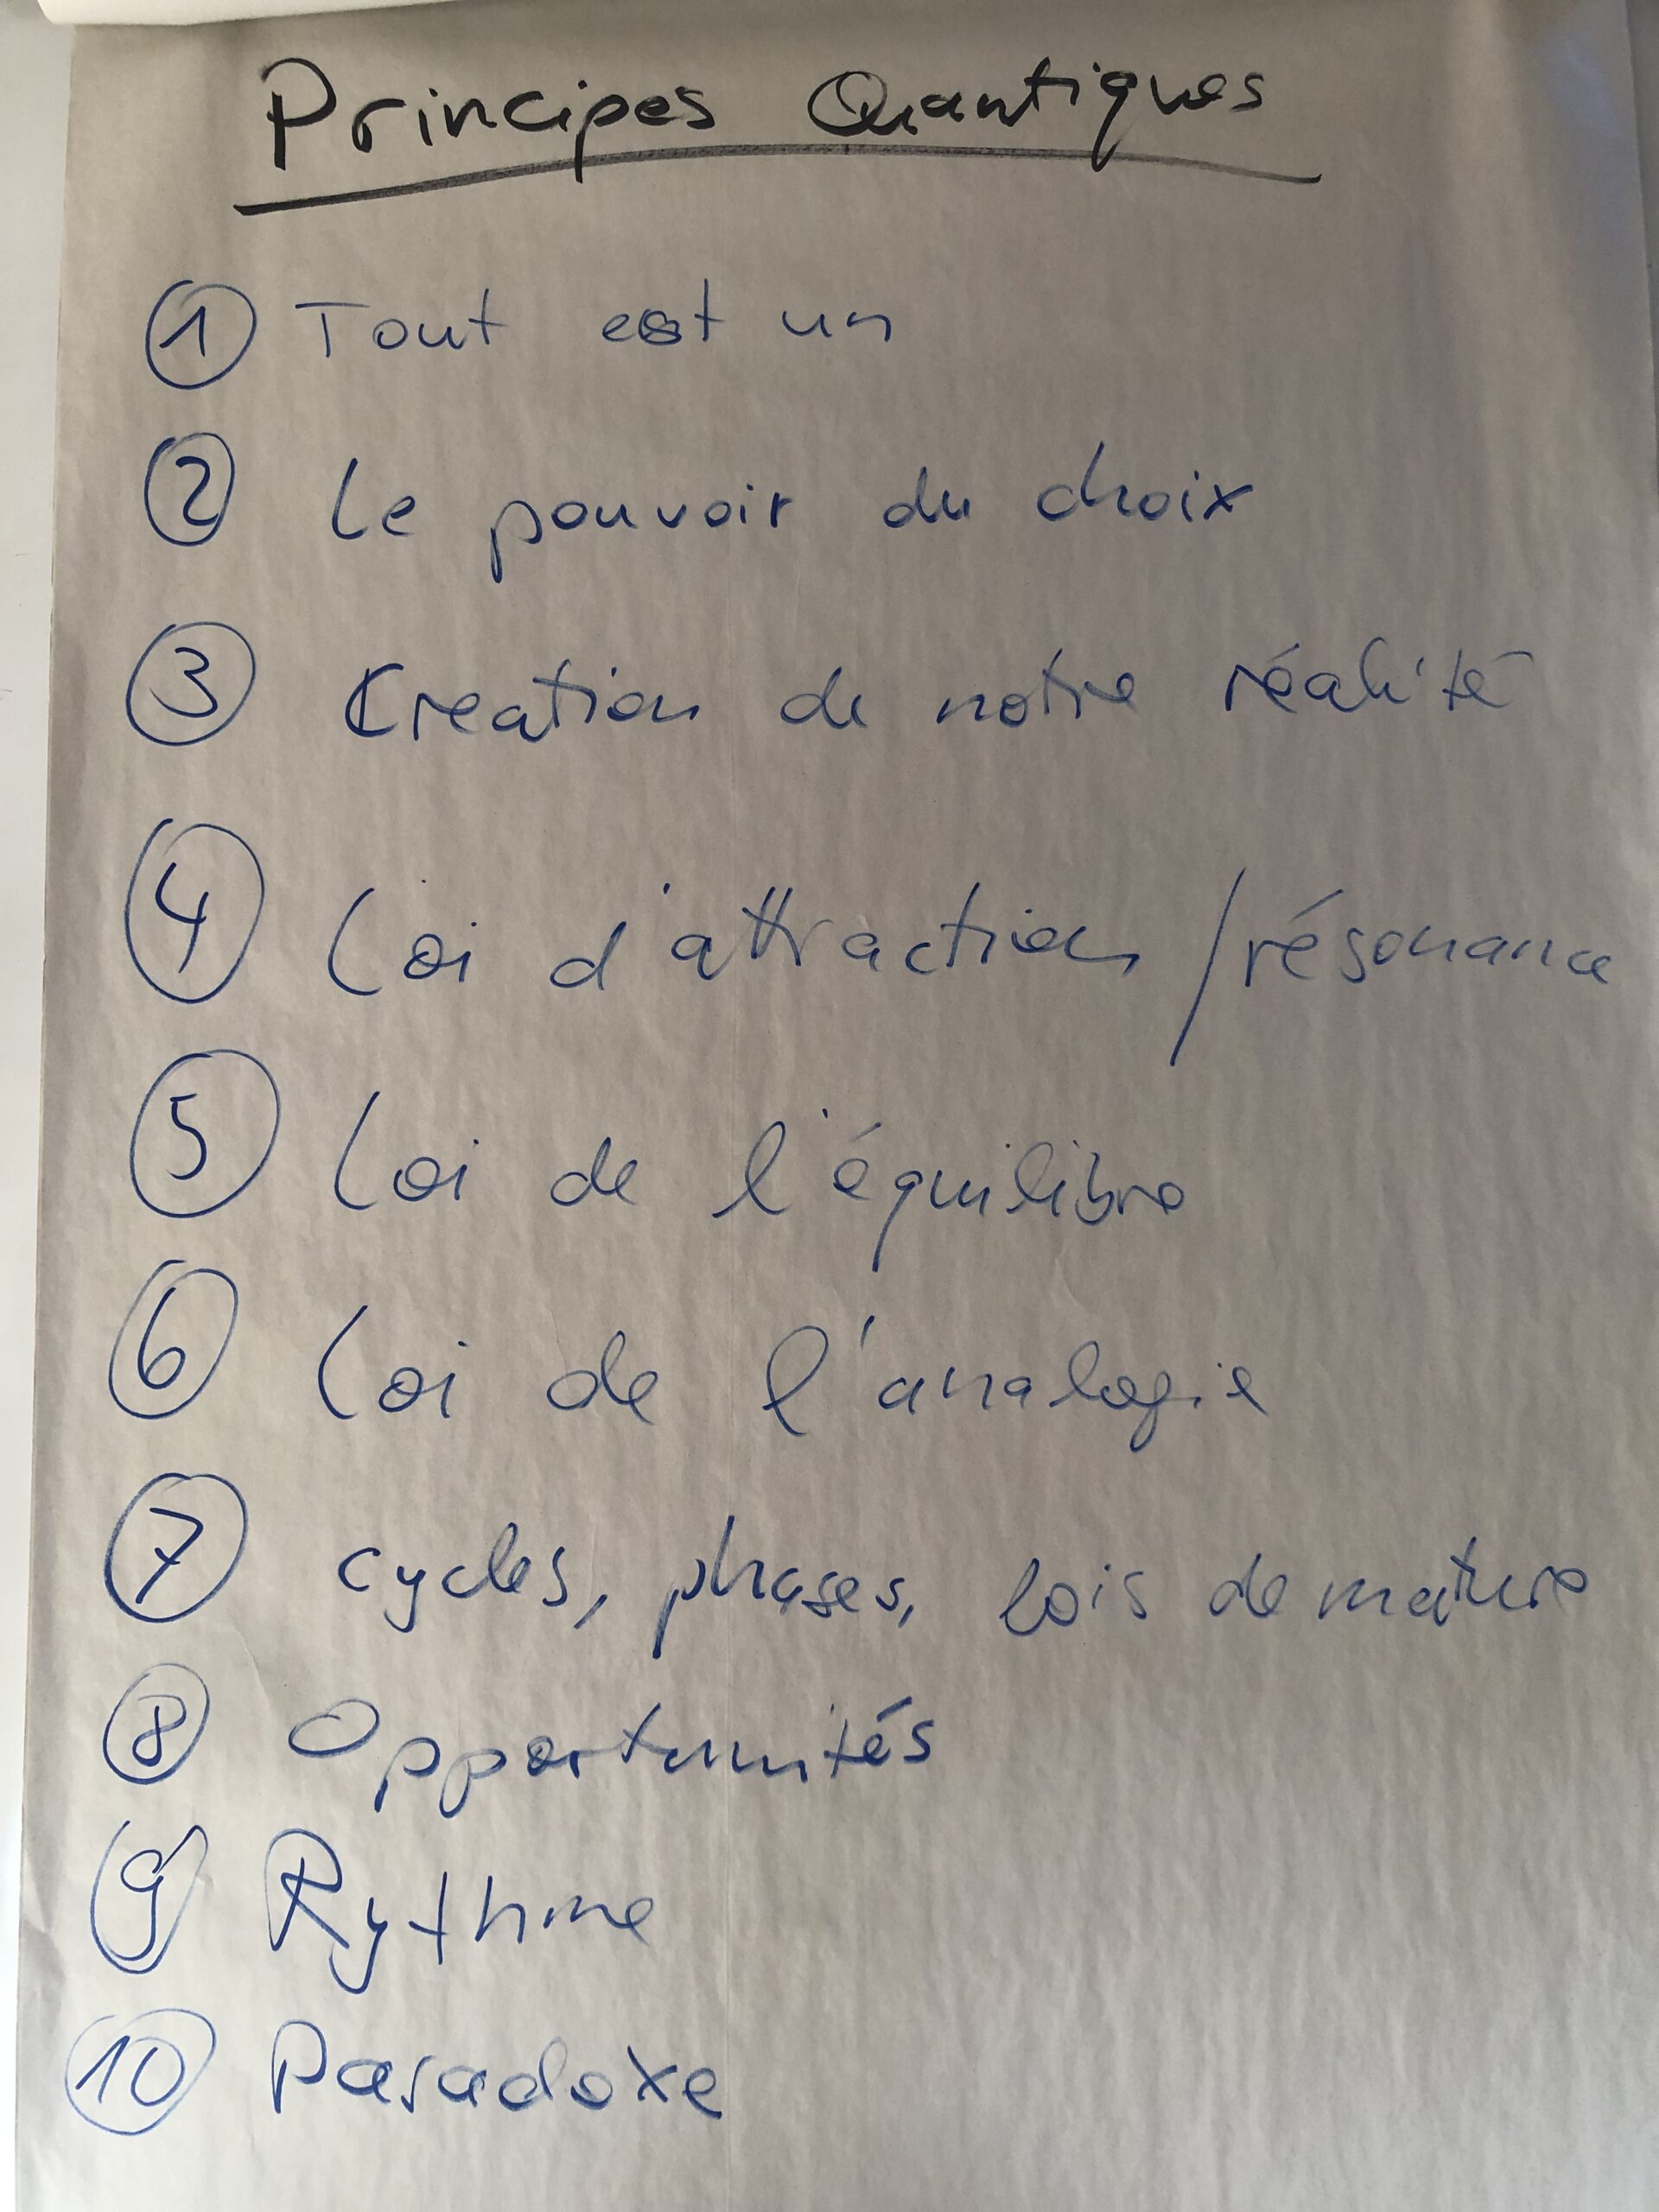 Principes Quantiques
1 Tout est un
2 Le pouvoir du choix
3 Creation de notre réalité
4 Loi d'attraction / résonance
5 Loi de l'équilibre
6 Loi de l'analogie
7 cycles, phases, lois de mature
8 Opportunités
9 Rythme
10 Paradoxe